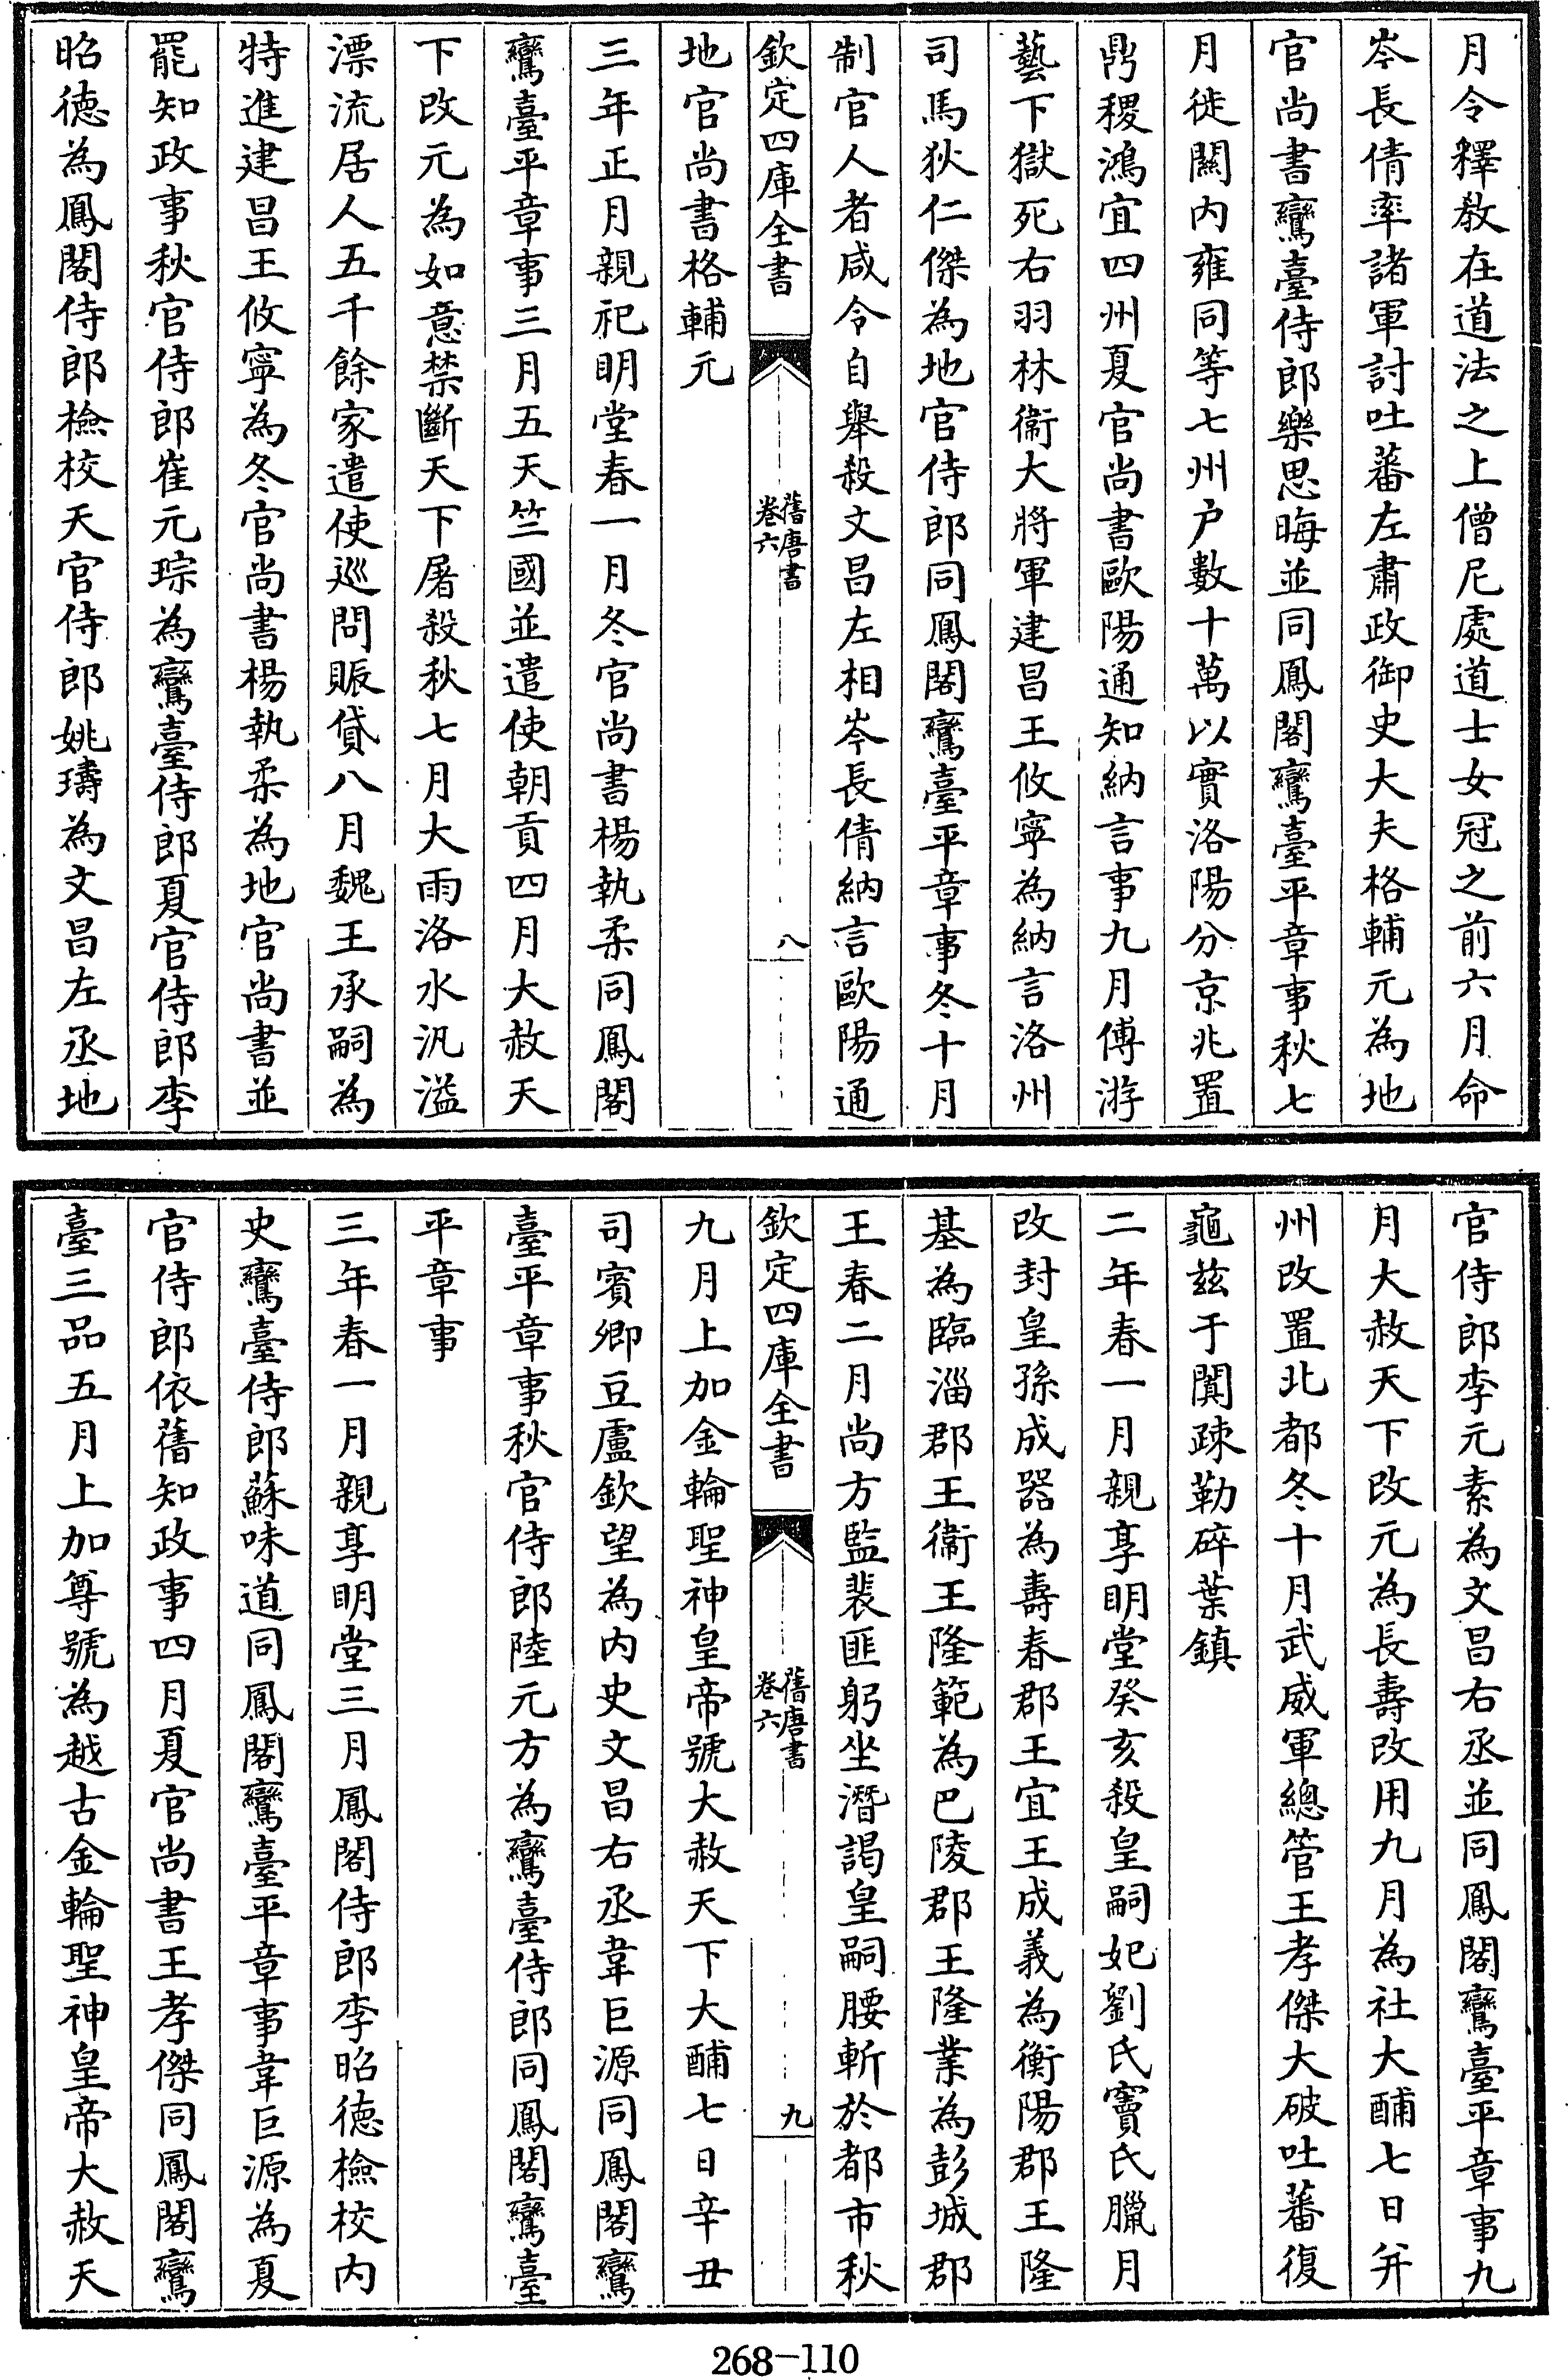 月令釋教在道法之上僧尼處道士女冠之前六月命
岑長倩率諸軍討吐蕃左肅政御史大夫格輔元為地
官尚書鸞臺侍郎樂思晦並同鳳閣鸞臺平章事秋七
月徙關內雍同等七州户數十萬以實洛陽分京兆置
鼎稷鴻宜四州夏官尚書歐陽通知納言事九月傅游
藝下獄死右羽林衞大將軍建昌王攸寧為納言洛州
司馬狄仁傑為地官侍郎同鳳閣鸞臺平章事冬十月
制官人者咸令自舉殺文昌左相岑長倩納言歐陽通
欽定四庫全書
舊唐書
卷六
八
地官尚書格輔元
三年正月親祀明堂春一月冬官尚書楊執柔同鳳閣
鸞臺平章事三月五天竺國並遣使朝貢四月大赦天
下改元為如意禁斷天下屠殺秋七月大雨洛水汎溢
漂流居人五千餘家遣使巡問賑貸八月魏王承嗣為
特進建昌王攸寧為冬官尚書楊執柔為地官尚書並
罷知政事秋官侍郎崔元琮為鸞臺侍郎夏官侍郎李
昭德為鳳閣侍郎檢校天官侍郎姚璹為文昌左丞地
官侍郎李元素為文昌右丞並同鳳閣鸞臺平章事九
月大赦天下改元為長壽改用九月為社大酺七日并
州改置北都冬十月武威軍總管王孝傑大破吐蕃復
龜兹于闐疎勒碎葉鎮
二年春一月親享明堂癸亥殺皇嗣妃劉氏竇氏臘月
改封皇孫成器為壽春郡王宜王成義為衡陽郡王隆
基為臨淄郡王衞王隆範為巴陵郡王隆業為彭城郡
王春二月尚方監裴匪躬坐潛謁皇嗣腰斬於都市秋
欽定四庫全書
舊唐書
卷六
九
九月上加金輪聖神皇帝號大赦天下大酺七日辛丑
司賓卿豆盧欽望為內史文昌右丞韋巨源同鳳閣鸞
臺平章事秋官侍郎陸元方為鸞臺侍郎同鳳閣鸞臺
平章事
三年春一月親享明堂三月鳳閣侍郎李昭德檢校內
史鸞臺侍郎蘇味道同鳳閣鸞臺平章事韋巨源為夏
官侍郎依舊知政事四月夏官尚書王孝傑同鳳閣鸞
臺三品五月上加尊號為越古金輪聖神皇帝大赦天
268-110